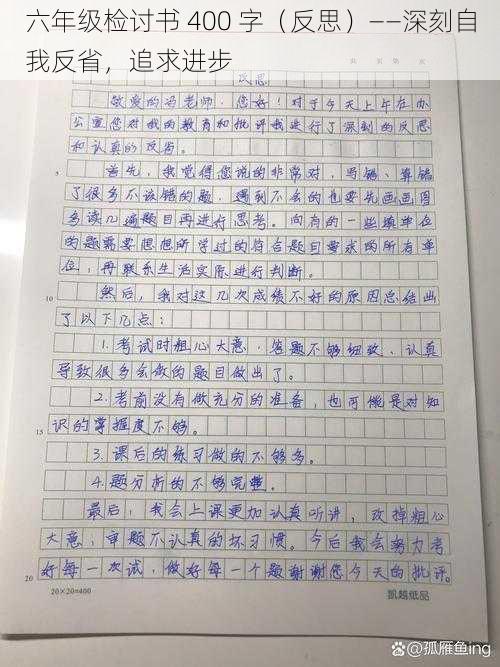 六年级检讨书 400 字（反思）——深刻自
我反省，追求进步
页 共 第 次
反思
敬爱的冯老师，您好！对于今天上午在办
公室您对我的教育和批评我进行了深刻的反思
和认真的反省。
5
首先，我觉得您说的非常对，写错、算错
了很多不该错的题，遇到不会的也要先画画图
多读几遍题目再进行思考。向有的一些填单位
的题需要想想所学过的符合题目要求的所有单
位，再联系生活实际进行判断。
10
然后，我对这几次成绩不好的原因总结出
了以下几点：
1.考试时粗心大意，答题不够细致、认真
导致很多会做的题目做出了。
2.考前没有做充分的准备，也可能是对知
15
识的掌握度不够。
3.课后的练习做的不够多。
4.题分析的不够完整。
最后，我会上课更加认真听讲，改掉粗心
大意，审题不认真的坏习惯。今后我会努力考
20
好每一次试，做好每一个题谢谢您今天的批评。
20×20=400
凯越纸品
@孤雁鱼ing